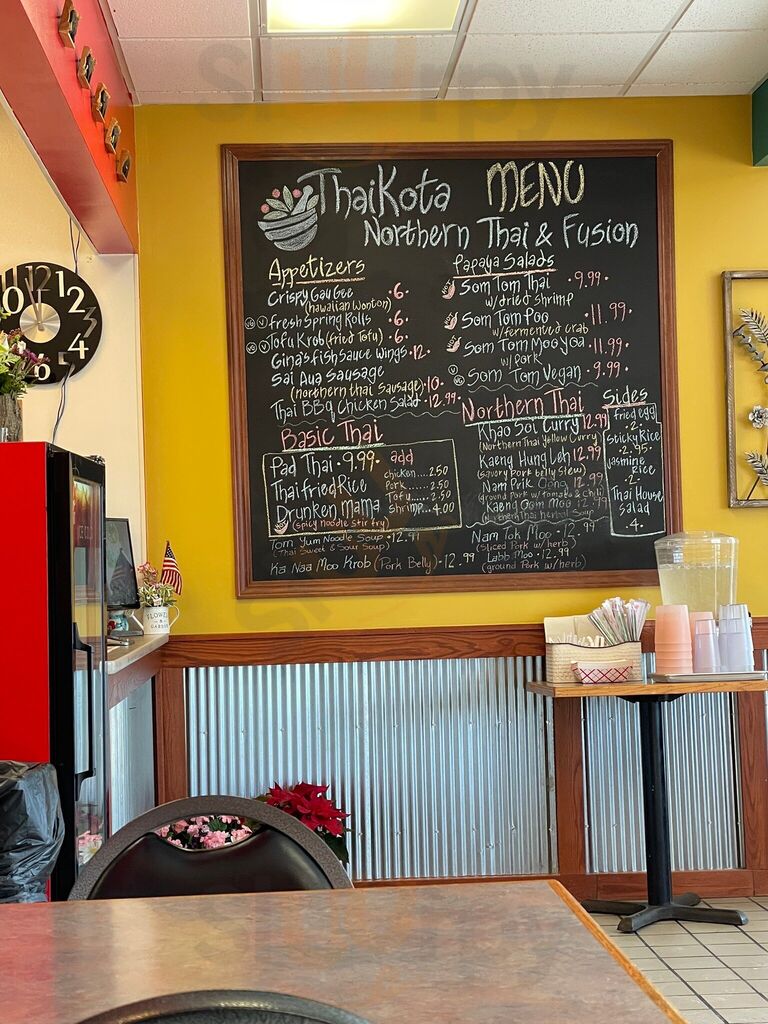 ThaiKota MENU
Northern Thai & Fusion
Appetizers
Crispy Gau Gee •6•
(hawaiian wonton)
VG V fresh Spring Rolls •6•
VG V Tofu Krob (fried Tofu) •6•
Gina's fish Sauce Wings •12•
Sai Aua Sausage
(northern thai Sausage) •10•
Thai BBQ Chicken Salad •12.99
Papaya Salads
Som Tom Thai •9.99•
w/dried shrimp
Som Tom Poo •11.99•
w/fermented crab
Som Tom Mooyoa •11.99•
w/Pork
V Som Tom Vegan •9.99•
Basic Thai
Pad Thai •9.99•
Thai fried Rice
Drunken Mama
(spicy noodle stir fry)
add
chicken....2.50
Pork.....2.50
Tofu.....2.50
shrimp...4.00
Tom Yum Noodle Soup •12.99
(Thai Sweet & Sour Soup)
Ka Naa Moo Krob (Pork Belly) •12.99
Northern Thai
Khao Soi Curry 12.99
(Northern Thai Yellow Curry)
Kaeng Hung Leh 12.99
(savory Pork belly Stew)
Nam Prik Oong 12.99
(ground Pork w/tomato & Chili)
Kaeng Oom Moo 12.99
(Northern Thai Herbal Soup)
Nam Tok Moo •12.99
(Sliced Pork w/herb)
Labb Moo •12.99
(ground Pork w/herb)
Sides
fried egg
•2•
Sticky Rice
•2.95•
Jasmine
Rice
•2•
Thai House
Salad
•4•
12
1
2
4
FLOWERS
&
GARDEN